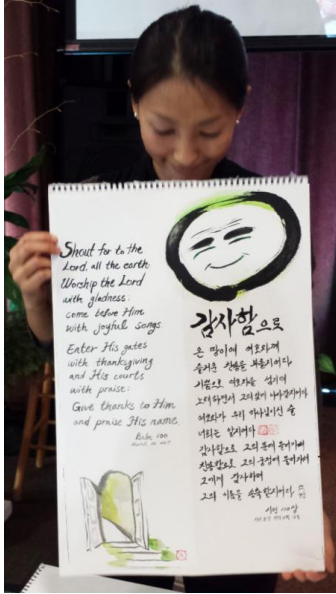 Shout for to the
Lord, all the earth
Worship the Lord
with gladness:
come before Him
with joyful songs.
Enter His gates
with thanksgiving
and His courts
with praise:
Give thanks to Him
and praise His name.
100
감사함으로
온 땅이여 여호와께
즐거운 찬송을 부를지어다.
기쁨으로 여호와를 섬기며
노래하면서 그의 앞에 나아갈지어다
여호와가 우리 하나님이신 줄
너희는 알지어다
감사함으로 그의 문에 들어가며
찬송함으로 그의 궁정에 들어가서
그에게 감사하며
그의 이름을 송축할지어다.
시편 100편